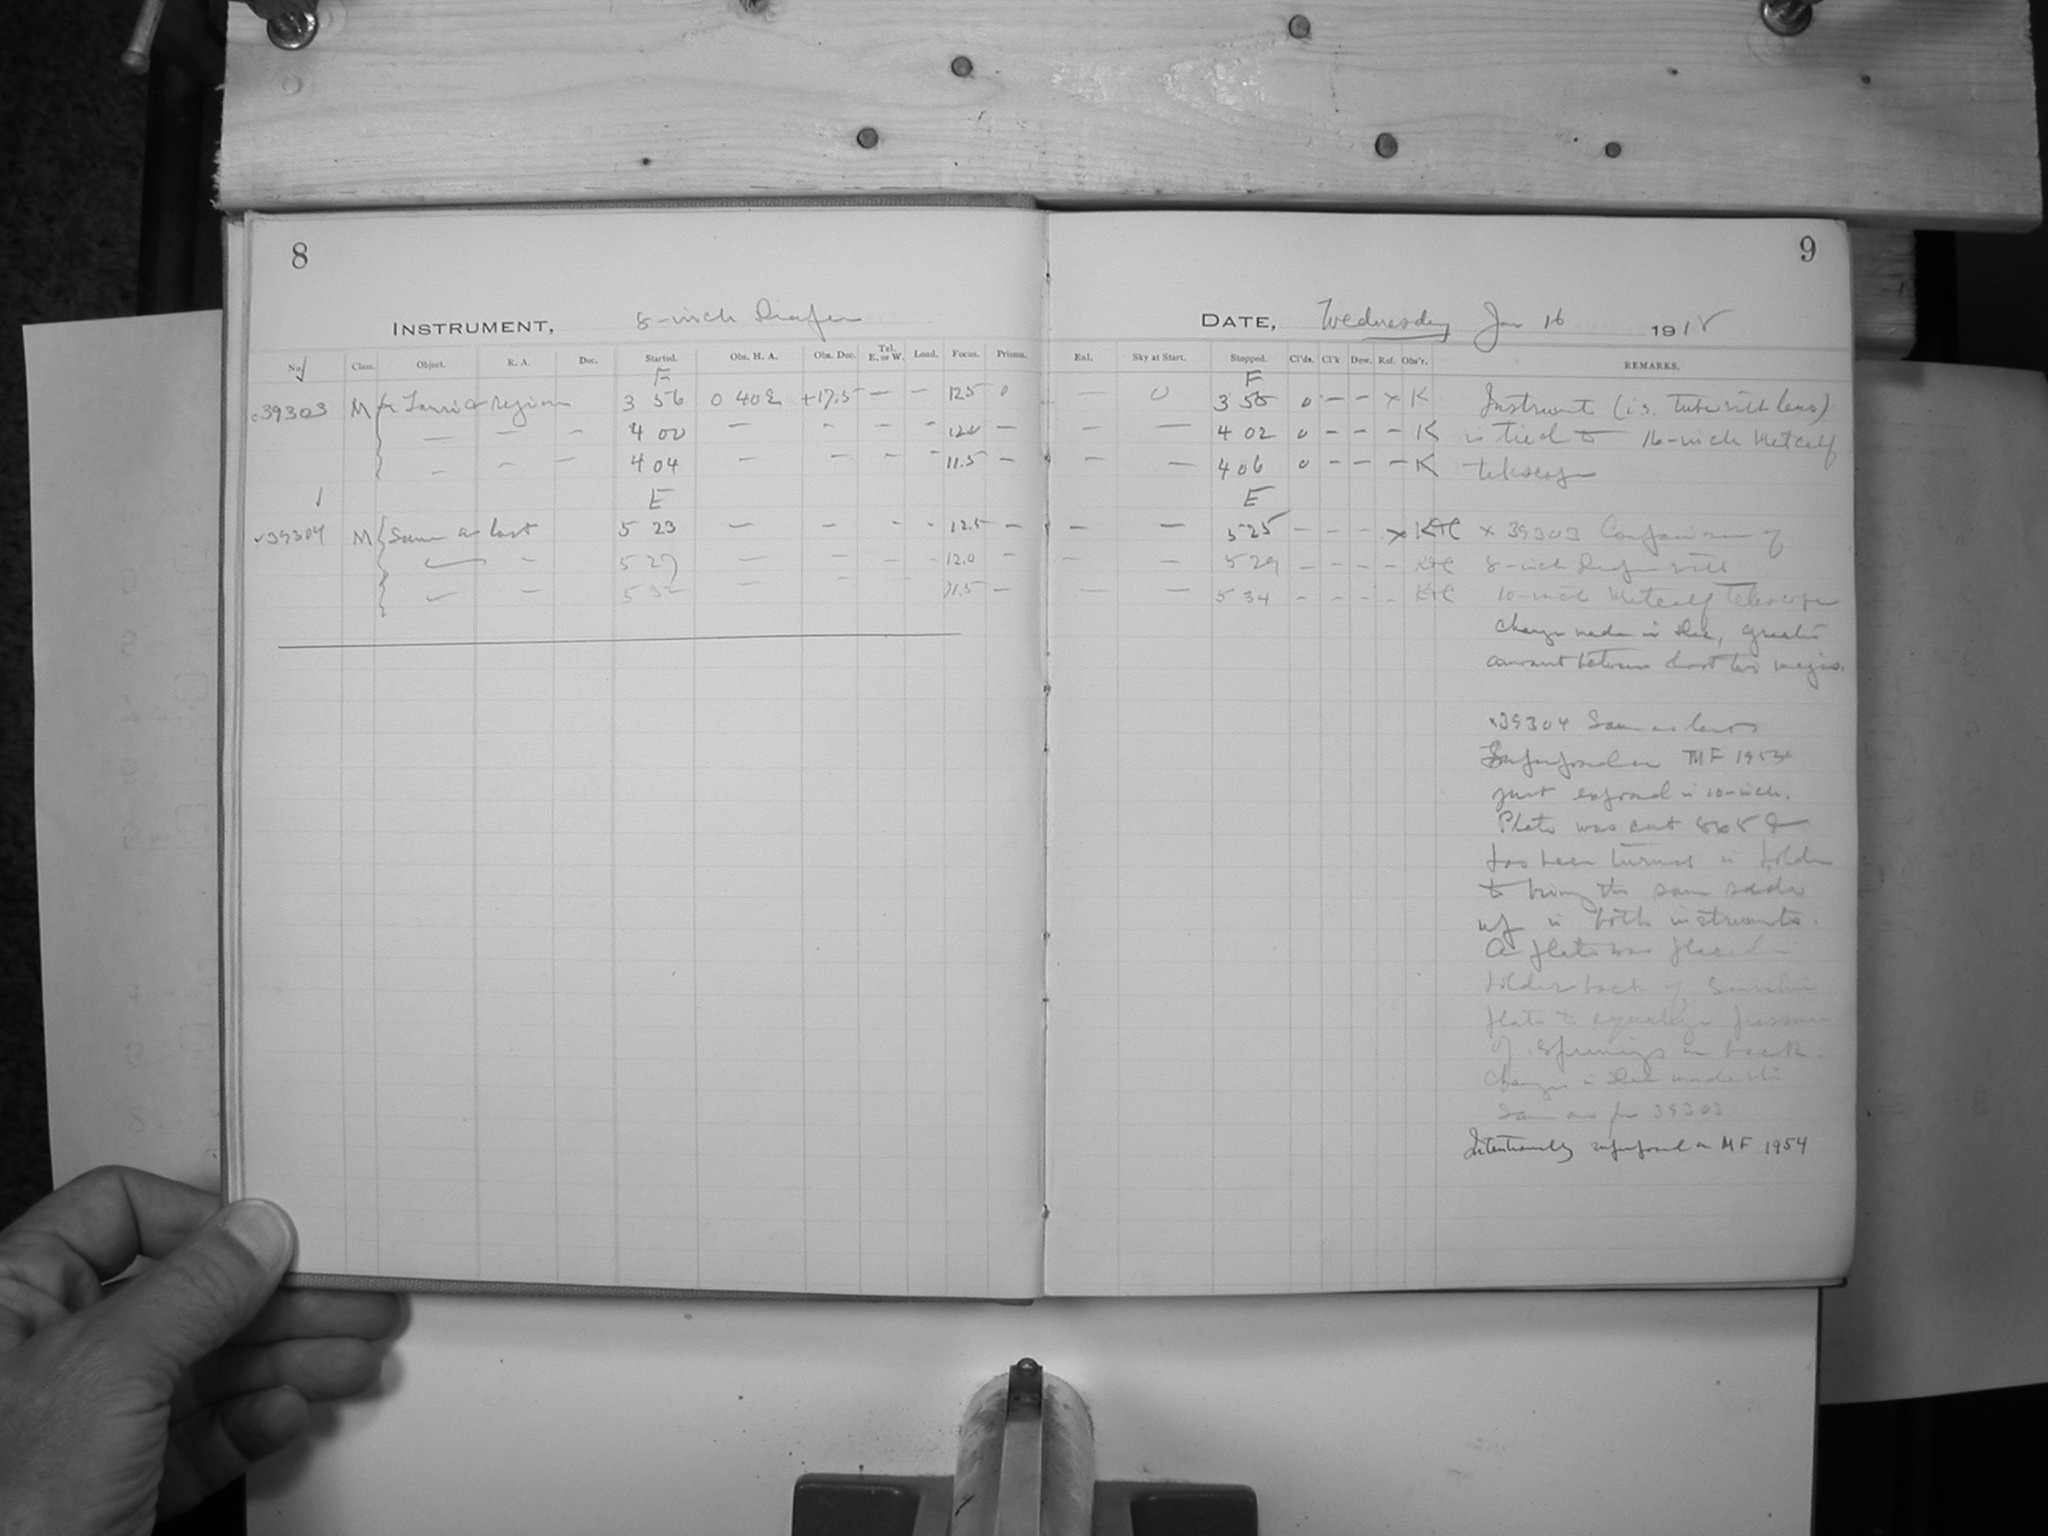 8
9
INSTRUMENT, 8-inch Draper
DATE, Wednesday Jan 16 1918
No. Class. Object. R. A. Dec. Started. Obs. H. A. Obs. Dec. Tel. E. or W. Load. Focus. Prisms.
Enl. Sky at Start. Stopped. Cl'ds. Cl'k Dew. Ref. Obs'r. REMARKS.
F F
39303 M Tauri region 3 56 0 40 +17.5 — — 12.5 0 — 0 3 58 0 - - x K Instrument (i.e. tube with lens)
— — — 4 00 — - - - 12.0 — — — 4 02 0 - - - K is tied to 16-inch Metcalf
- - — 4 04 — - - - 11.5 — — — 4 06 0 - - - K telescope
E E
39304 M Same as last 5 23 — — - - 12.5 — — — 5 25 - - - x x 39303 Comparison of
5 27 — - - - 12.0 - — — 5 29 - - - - 8-inch Draper with
5 32 — - - - 11.5 — — — 5 34 - - - - 10-inch Metcalf Telescope
change made in greatest
amount between last two images.
x39304 Same as last
Superposed on MF 1954
just exposed in 10-inch.
Plate was cut 8x8 &
has been turned in holder
to bring the same side
up in both instruments.
A plate was placed in
holder back of sensitive
plate to equalize pressure
of springs on back.
Changes in made the
same as for 39303
Intentionally superposed on MF 1954